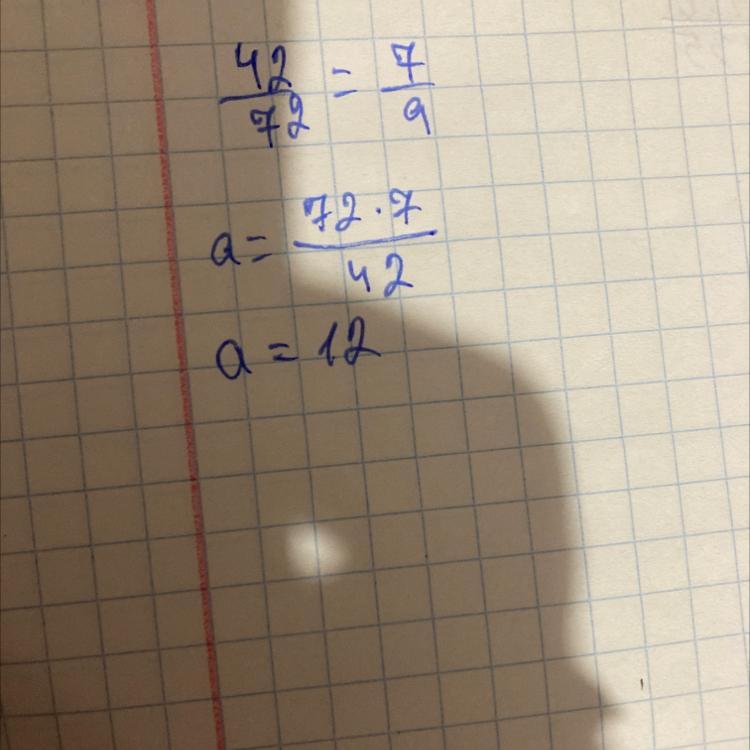 42/72 = 7/a
a = 72·7/42
a = 12